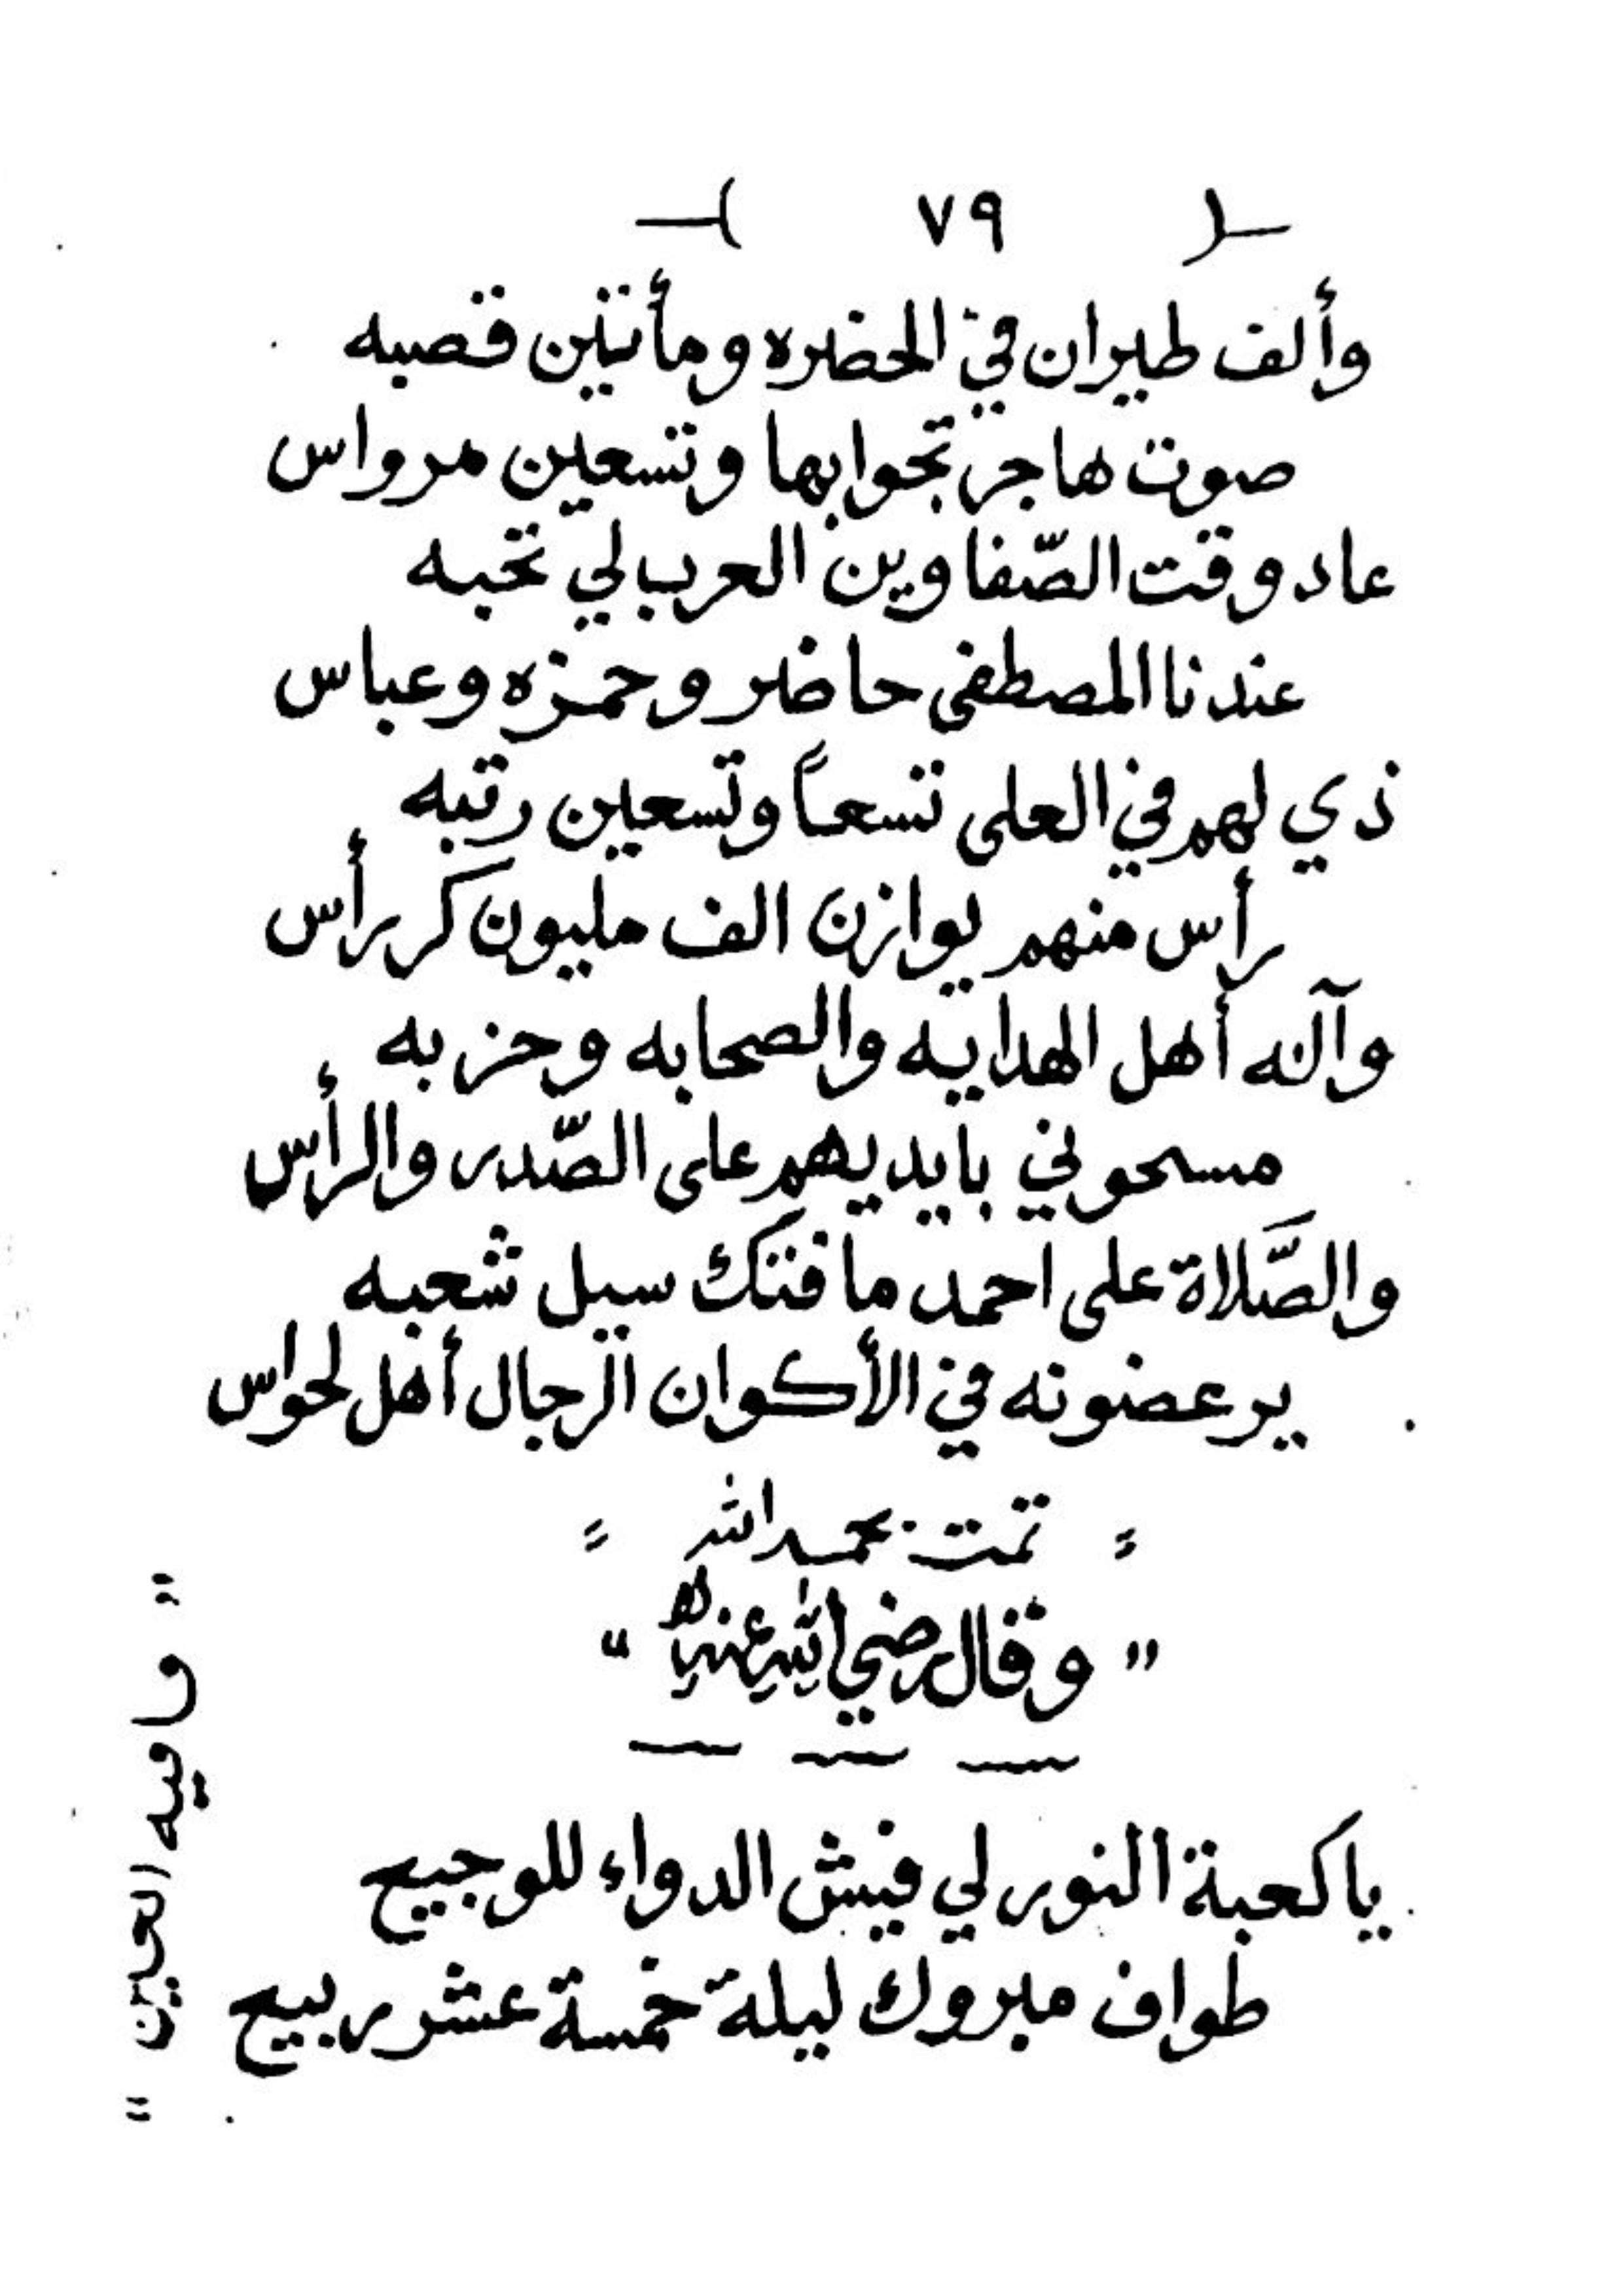 ( ٧٩ )
وألف طيران في الحضره ومأتين قصبه
صوت هاجر تجوابها وتسعين مرواس
عاد وقت الصّفا وين العرب لي تحبه
عندنا المصطفى حاضر وحمزه وعباس
ذي لهم في العلى تسعاً وتسعين رتبه
رأس منهم يوازن الف مليون كر رأس
وآله أهل الهدايه والصحابه وحزبه
مسحوني بايديهم على الصّدر والرأس
والصَّلاة على احمد ما فتك سيل شعبه
ير عضونه في الأكوان الرجال أهل لحواس
= تمت بحمد الله =
" وقال رضي الله عنه "
يا كعبة النور لي فيش الدواء للوجيع
طواف مبروك ليلة خمسة عشر ربيع
" قافيه العين "